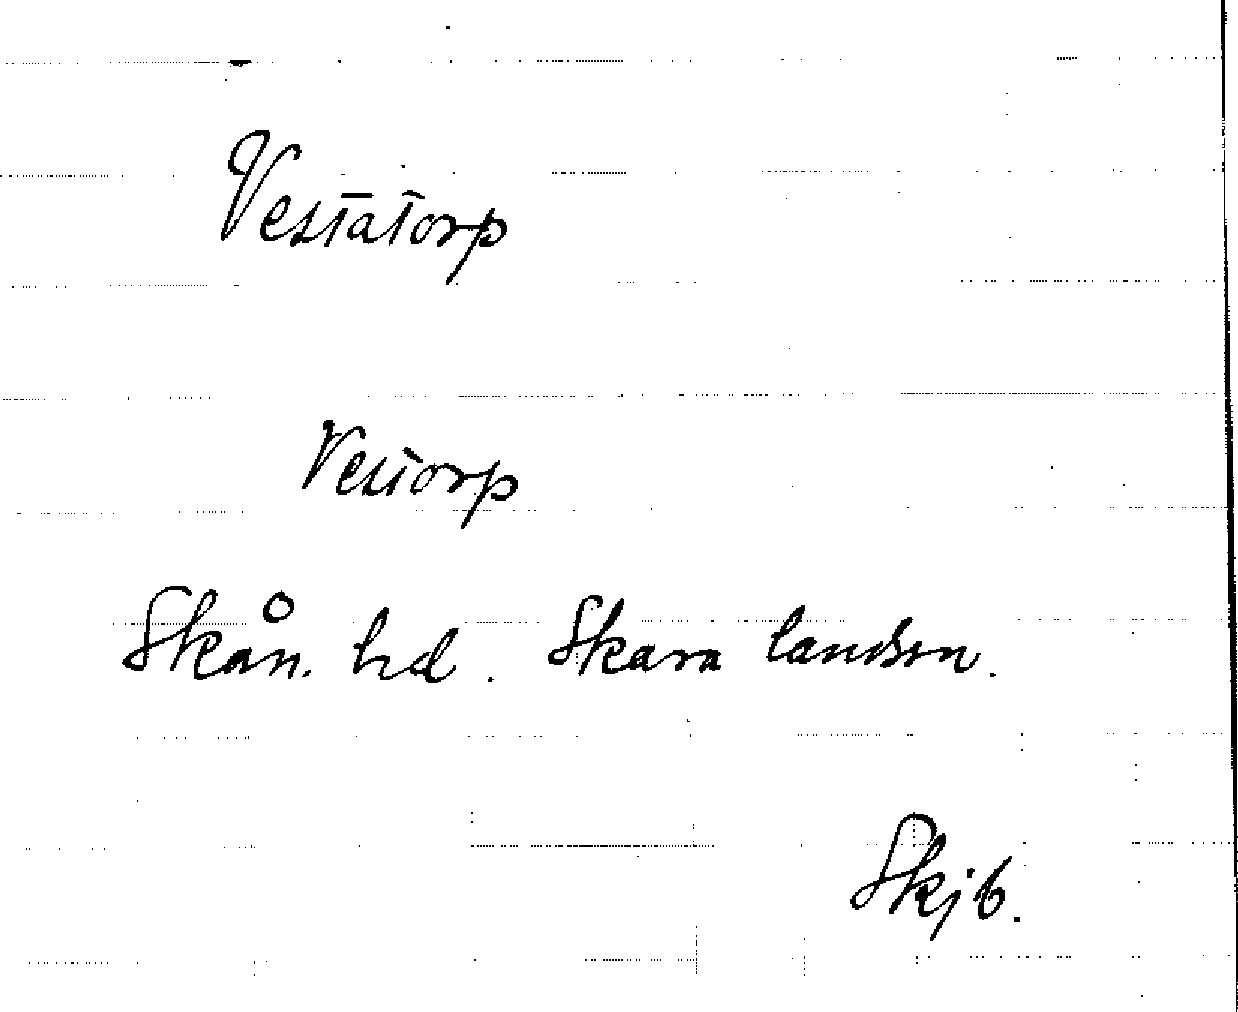 Vestatorp
Vestorp
Skån. hd. Skara landsn.
Skjb.